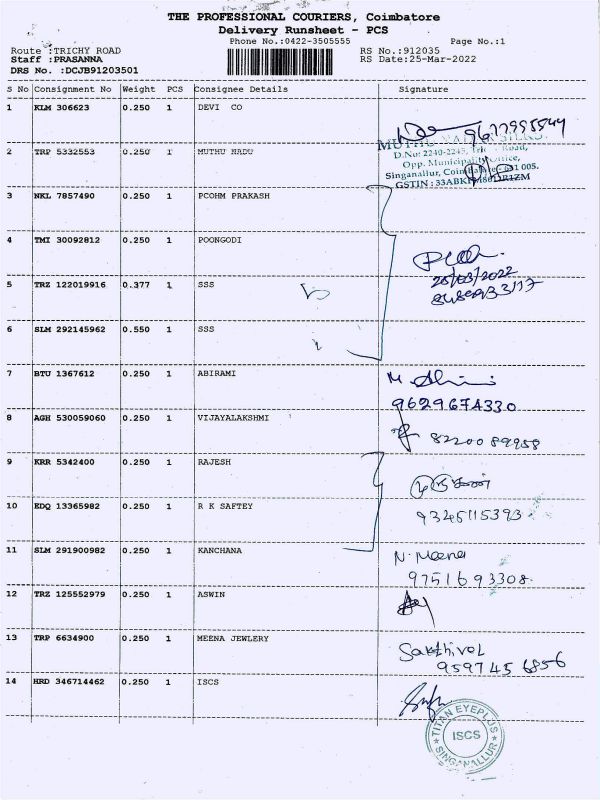 THE PROFESSIONAL COURIERS, Coimbatore
Delivery Runsheet - PCS
Phone No.:0422-3505555 Page No.:1
Route :TRICHY ROAD RS No.:912035
Staff :PRASANNA RS Date:25-Mar-2022
DRS No. :DCJB91203501
S No Consignment No Weight PCS Consignee Details Signature
1 KLM 306623 0.250 1 DEVI CO
9677995544
2 TRP 5332553 0.250 1 MUTHU NADU
D.No: 2240-2245, Road,
Opp. Municipality Office,
Singanallur, 641 005.
GSTIN :
3 NKL 7857490 0.250 1 PCOHM PRAKASH
4 TMI 30092812 0.250 1 POONGODI
25/03/2022
5 TRZ 122019916 0.377 1 SSS
6 SLM 292145962 0.550 1 SSS
7 BTU 1367612 0.250 1 ABIRAMI
M.
9629674330
8 AGH 530059060 0.250 1 VIJAYALAKSHMI
8220089958
9 KRR 5342400 0.250 1 RAJESH
முருகன்
10 EDQ 13365982 0.250 1 R K SAFTEY
9345115393
11 SLM 291900982 0.250 1 KANCHANA
N. Meena
9751693308
12 TRZ 125552979 0.250 1 ASWIN
13 TRP 6634900 0.250 1 MEENA JEWLERY
Sakthivel
959745 6856
14 HRD 346714462 0.250 1 ISCS
TITAN EYEPLUS
ISCS
SINGANALLUR